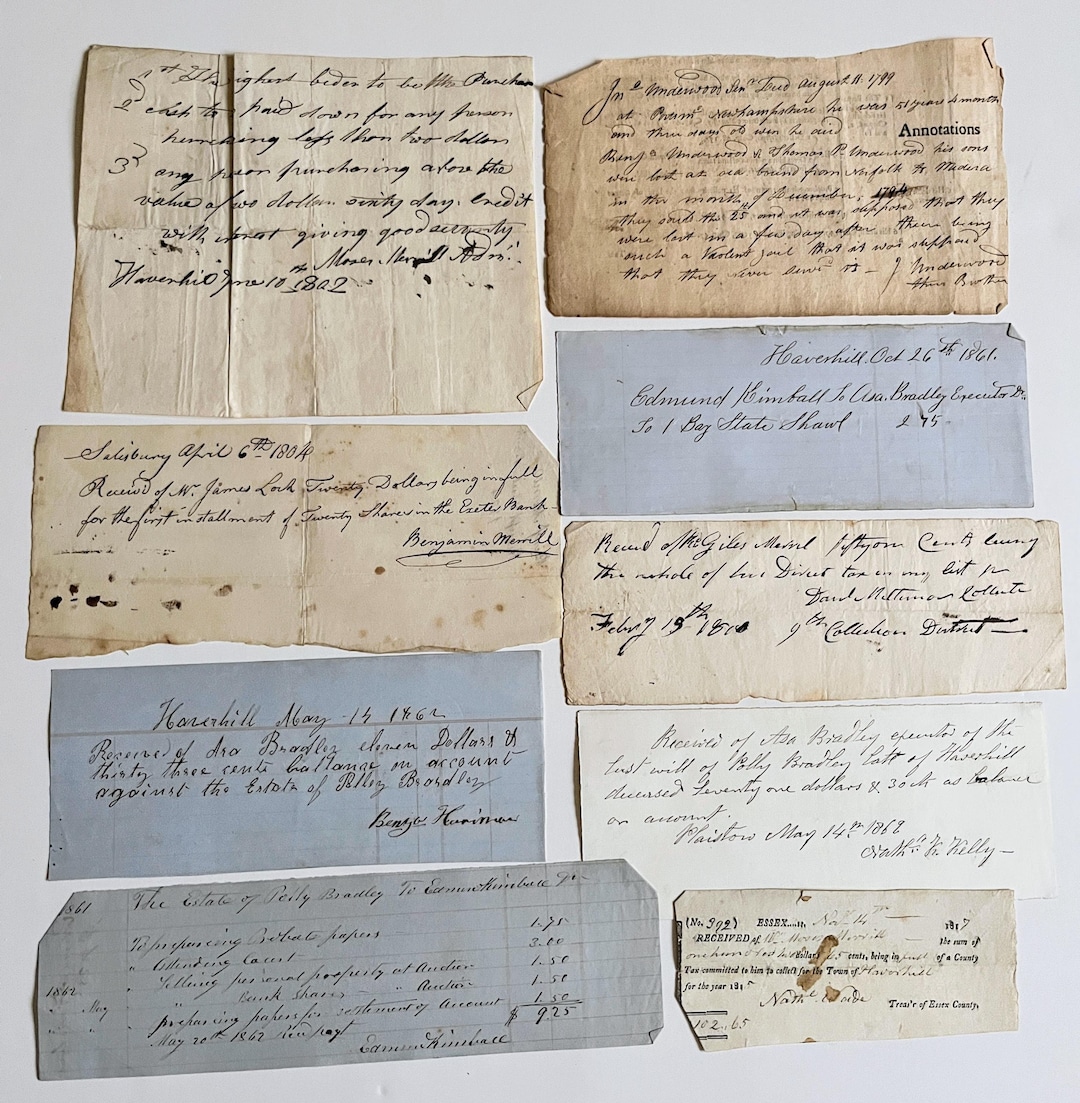 1st The highest bider to be the Purchaser
2) Cash to paid down for any person
remaining less than two dollars
3) any person purchasing above the
value of two dollars sixty day Credit
with intrest giving good security
Moses Merrill Adm.
Haverhill June 10th 1802
Jno Underwood Senr Died August 11. 1799
at Newhampshire he was 51 years 4 month
and three days old wen he died
Annotations
Benja Underwood & Thomas P. Underwood his sons
were lost at sea bound from Norfolk to Madera
in the month of December, 1794
they said the 25th and it was supposed that they
were lost in a few day after there being
such a Violent gail that it was supposed
that they never
J Underwood
their Brother
Haverhill. Oct 26th 1861.
Edmund Kimball To Asa. Bradley Executor Dr.
To 1 Bay State Shawl 2 75
Salisbury April 6th 1804
Received of Mr. James Lock Twenty Dollars being in full
for the first installment of Twenty Shares in the Exeter Bank
Benjamin Merrill
Receed of Mr Giles Merril fiftyone Cents being
the whole of his Direct tax in my list
Collector
Febry 15th 9th Collection District
Haverhill May 14 1862
Received of Asa Bradley eleven Dollars &
thirty three cents ballance on account
against the Estate of Polley Bradley
Benja Harriman
Received of Asa Bradley executor of the
last will of Polly Bradley late of Haverhill
deceased Seventy one dollars & 30cts as balance
on account.
Plaistow May 14th 1862
Nathl K. Kelly
1861 The Estate of Polly Bradley To Edmund Kimball Dr
To preparing Probate papers 1.75
" Attending Court 3.00
" Selling personal property at Auction 1.50
1862 " " Bank Shares " Auction 1.50
" May " preparing papers for settlement of Account 1.50
$ 9.25
May 20th 1862 Recd payt
Edmund Kimball
(No. 392) ESSEX.....ss. Novr 14th 1817
RECEIVED of Mr. Moses Merrill the sum of
one hundred two dollars 65 cents, being in full of a County
Tax committed to him to collect for the Town of Haverhill
for the year 181
Nathl Wade Treas'r of Essex County,
102..65